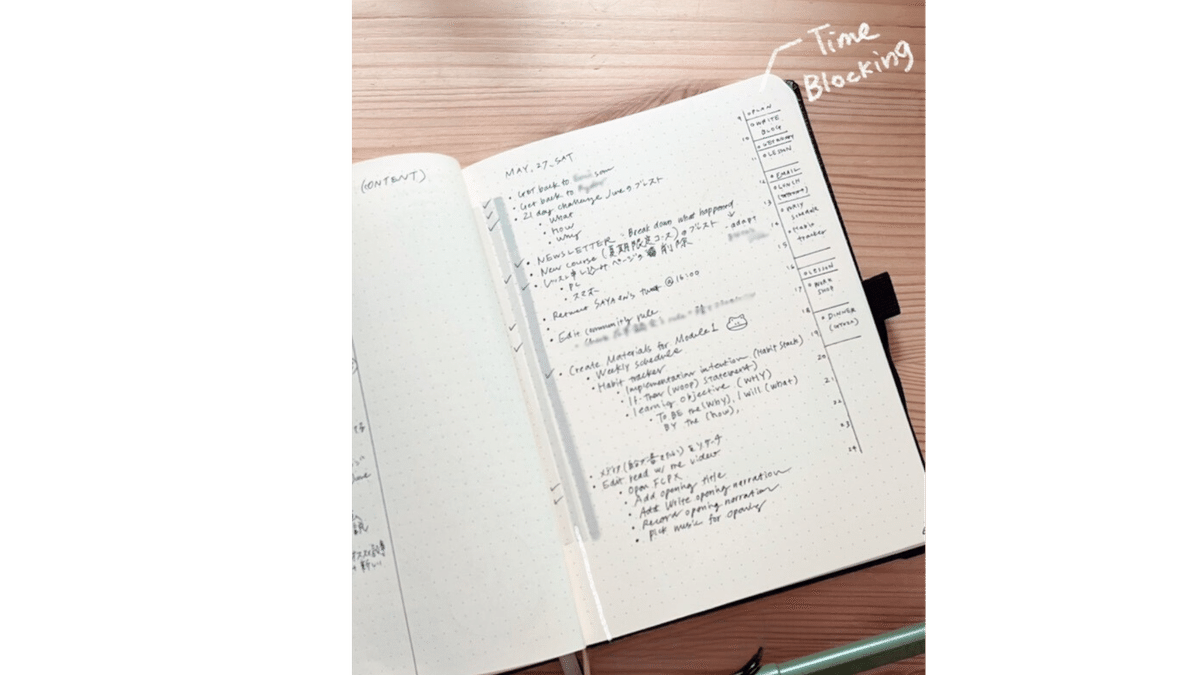 Time
Blocking
(CONTENT)
MAY. 27_SAT
• Get back to soon
• Get back to
• 21 day challenge Juneのブレスト
• What
• How
• Why
• NEWSLETTER - Break down what happened
- adapt
• New course (夏期限定コース)のブレスト
• レッスン申し込みページの 削除
• PC
• スマホ
• Retweet SAYA En's tweet @16:00
• Edit community rule
• Create Materials for Module 1
• Weekly schedule
• Habit tracker
• Implementation intention (Habit Stack)
• If-Then (WOOP) statement)
• Learning objective (WHY)
• To BE the (Why), I will (what)
BY the (how),
• Edit read w/ me video
• Open FCPX
• Add opening title
• Add Write opening narration
• Record opening narration
• Pick music for opening
9 • PLAN
• WRITE
BLOG
10
• LESSON
11
12 • EMAIL
• LUNCH
13 • DAILY
schedule
14 • Habit
tracker
15
16 • LESSON
17 • WORK
SHOP
18 • DINNER
19
20
21
22
23
24